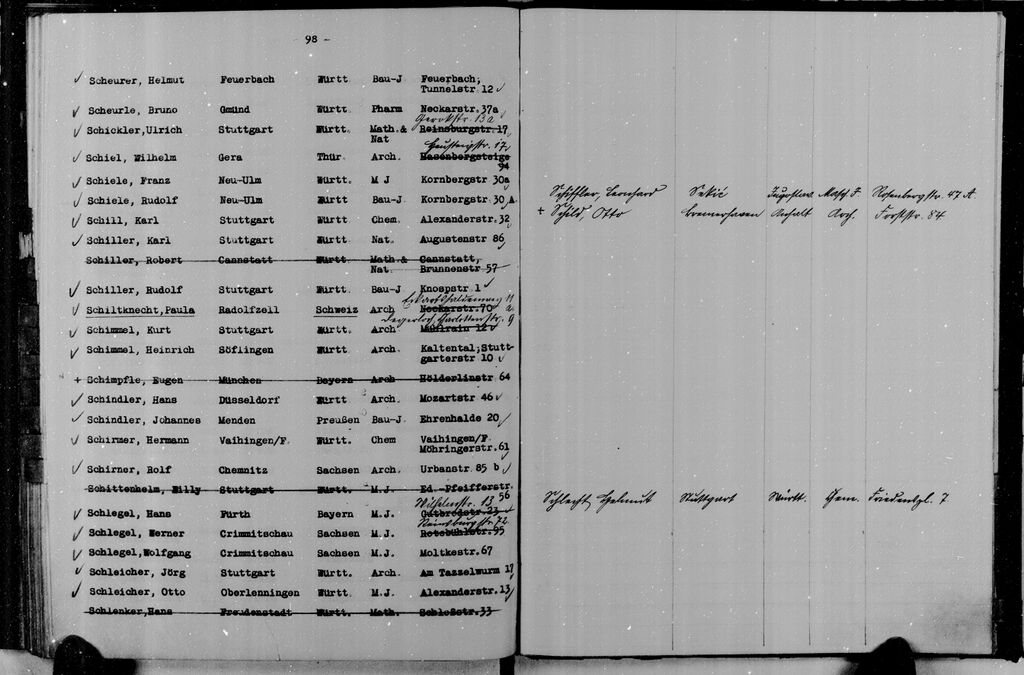 - 98 -
✓ Scheurer, Helmut Feuerbach Württ. Bau-J Feuerbach,
Tunnelstr 12 ✓
✓ Scheurle, Bruno Gmünd Württ Pharm Neckarstr. 37a
Gerokstr. 13a
✓ Schickler,Ulrich Stuttgart Württ. Math.& Reinsburgstr. 19
Nat
17
✓ Schiel, Wilhelm Gera Thür. Arch. Hasenbergsteige
94
✓ Schiele, Franz Neu-Ulm Württ. M J Kornbergstr 30a
✓ Schiele, Rudolf Neu-Ulm Württ Bau-J. Kornbergstr. 30 A
✓ Schill, Karl Stuttgart Württ Chem. Alexanderstr. 32
✓ Schiller, Karl Stuttgart Württ Nat. Augustenstr 86
Schiller, Robert Cannstatt Württ Math.& Cannstatt,
Nat. Brunnenstr 57
✓ Schiller, Rudolf Stuttgart Württ. Bau-J Knospstr 1 ✓
11
✓ Schiltknecht,Paula Radolfzell Schweiz Arch Neckarstr. 70
Degerloch, Charlottenstr. 9
✓ Schimmel, Kurt Stuttgart Württ. Arch Mühlrain 12
✓ Schimmel, Heinrich Söflingen Württ Arch. Kaltental,Stutt-
garterstr 10 ✓
+ Schimpfle, Eugen München Bayern Arch Hölderlinstr 64
✓ Schindler, Hans Düsseldorf Württ Arch. Mozartstr 46 ✓
✓ Schindler, Johannes Menden Preußen Bau-J. Ehrenhalde 20 ✓
✓ Schirmer, Hermann Vaihingen/F. Württ. Chem Vaihingen/F
Möhringerstr. 61
✓ Schirner, Rolf Chemnitz Sachsen Arch. Urbanstr. 85 b ✓
Schittenhelm, Willy Stuttgart Württ. M.J. Ed.-Pfeifferstr.
56
Wilhelmstr. 13
✓ Schlegel, Hans Fürth Bayern M.J. Gutbrodstr. 23
Reinsburgstr. 72
✓ Schlegel, Werner Crimmitschau Sachsen M.J. Rotebühlstr. 95
✓ Schlegel,Wolfgang Crimmitschau Sachsen M.J. Moltkestr. 67
✓ Schleicher, Jörg Stuttgart Württ. Arch. Am Tazzelwurm 19
✓ Schleicher, Otto Oberlenningen Württ. M.J. Alexanderstr. 13
Schlenker,Hans Freudenstadt Württ. Math. Schloßstr. 33
Schiffler, Leonhard Sekić Jugoslaw Masch J. Rosenbergstr. 47 A
+ Schild, Otto Bremerhaven Anhalt Arch. Forststr. 84
Schlecht Helmut Stuttgart Württ. Chem. Friedenspl. 7